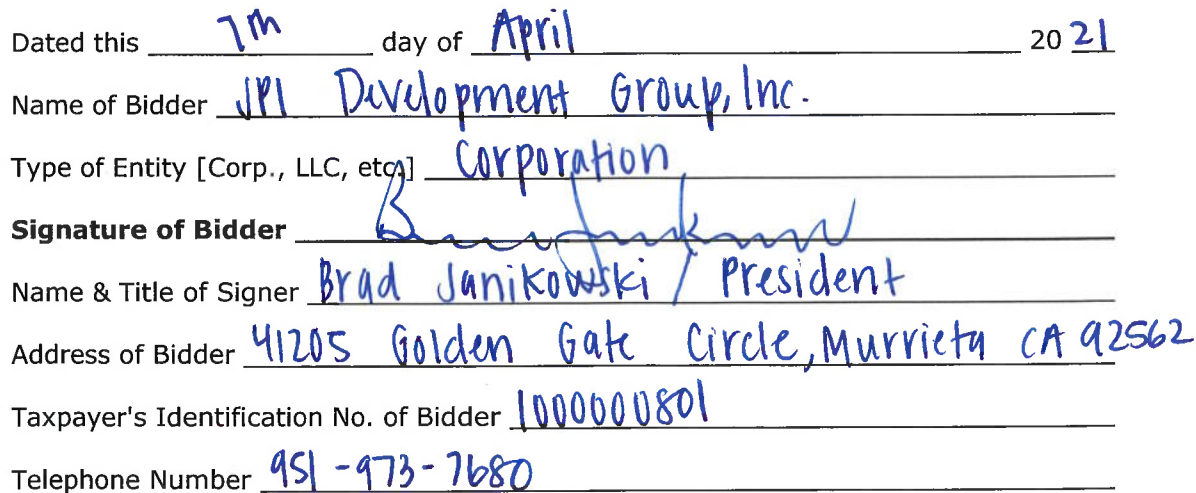 Dated this 7th day of April 20 21
Name of Bidder JPI Development Group, Inc.
Type of Entity [Corp., LLC, etc.] Corporation
Signature of Bidder
Name & Title of Signer Brad Janikowski / President
Address of Bidder 41205 Golden Gate Circle, Murrieta CA 92562
Taxpayer's Identification No. of Bidder 1000000801
Telephone Number 951-973-7680